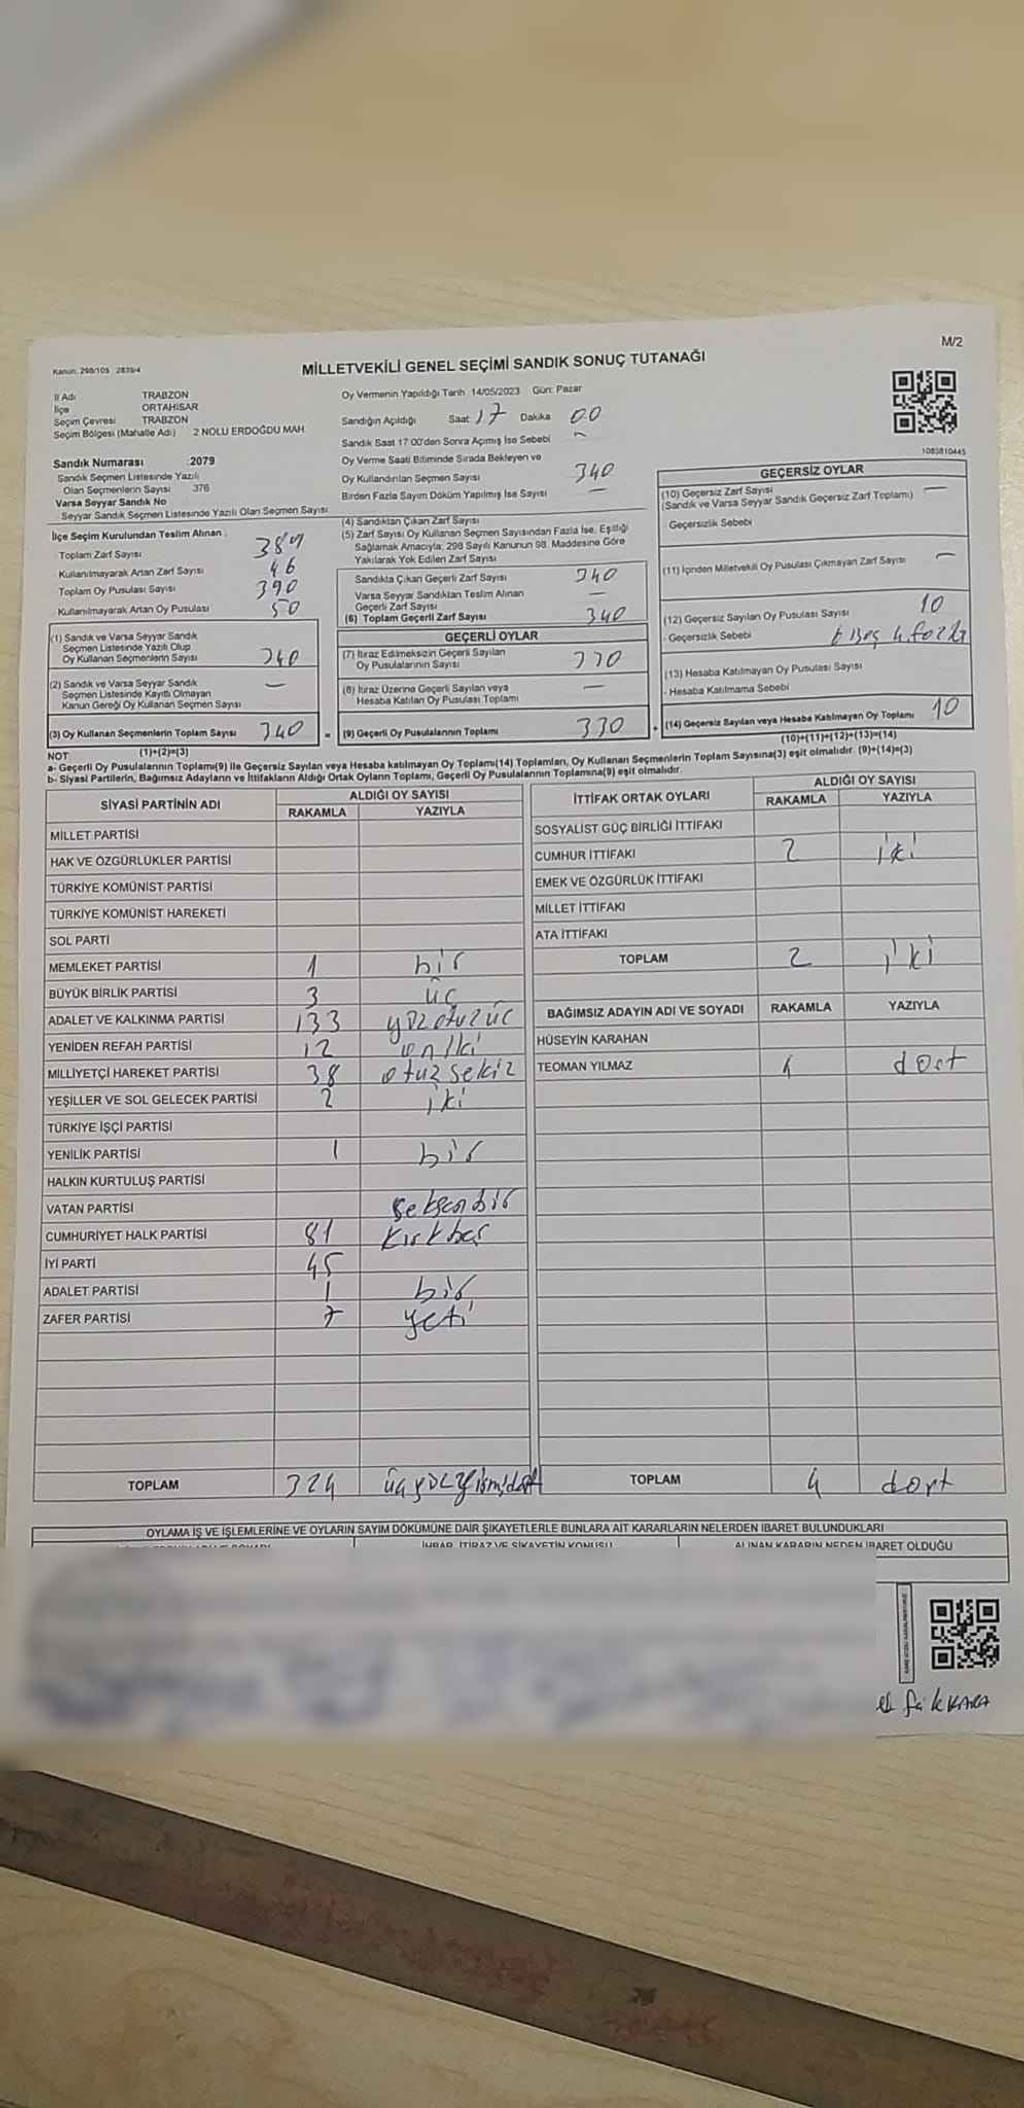 M/2
Kanun: 298/105 2839/4
MİLLETVEKİLİ GENEL SEÇİMİ SANDIK SONUÇ TUTANAĞI
İl Adı TRABZON
İlçe ORTAHİSAR
Seçim Çevresi TRABZON
Seçim Bölgesi (Mahalle Adı) 2 NOLU ERDOĞDU MAH.
Sandık Numarası 2079
Sandık Seçmen Listesinde Yazılı
Olan Seçmenlerin Sayısı 376
Varsa Seyyar Sandık No
Seyyar Sandık Seçmen Listesinde Yazılı Olan Seçmen Sayısı
Oy Vermenin Yapıldığı Tarih 14/05/2023 Gün: Pazar
Sandığın Açıldığı Saat 17 Dakika 00
Sandık Saat 17:00'den Sonra Açımış İse Sebebi
Oy Verme Saati Bitiminde Sırada Bekleyen ve
Oy Kullandırılan Seçmen Sayısı 340
Birden Fazla Sayım Döküm Yapılmış İse Sayısı —
1083810445
İlçe Seçim Kurulundan Teslim Alınan
Toplam Zarf Sayısı
Kullanılmayarak Artan Zarf Sayısı 46
Toplam Oy Pusulası Sayısı 390
Kullanılmayarak Artan Oy Pusulası 50
(1) Sandık ve Varsa Seyyar Sandık
Seçmen Listesinde Yazılı Olup
Oy Kullanan Seçmenlerin Sayısı 340
(2) Sandık ve Varsa Seyyar Sandık
Seçmen Listesinde Kayıtlı Olmayan
Kanun Gereği Oy Kullanan Seçmen Sayısı —
(3) Oy Kullanan Seçmenlerin Toplam Sayısı 340
(4) Sandıktan Çıkan Zarf Sayısı
(5) Zarf Sayısı Oy Kullanan Seçmen Sayısından Fazla İse, Eşitliği
Sağlamak Amacıyla; 298 Sayılı Kanunun 98. Maddesine Göre
Yakılarak Yok Edilen Zarf Sayısı
Sandıkta Çıkan Geçerli Zarf Sayısı 340
Varsa Seyyar Sandıktan Teslim Alınan
Geçerli Zarf Sayısı —
(6) Toplam Geçerli Zarf Sayısı 340
GEÇERLİ OYLAR
(7) İtiraz Edilmeksizin Geçerli Sayılan
Oy Pusulalarının Sayısı 330
(8) İtiraz Üzerine Geçerli Sayılan veya
Hesaba Katılan Oy Pusulası Toplamı —
= (9) Geçerli Oy Pusulalarının Toplamı 330
GEÇERSİZ OYLAR
(10) Geçersiz Zarf Sayısı —
(Sandık ve Varsa Seyyar Sandık Geçersiz Zarf Toplamı)
Geçersizlik Sebebi
(11) İçinden Milletvekili Oy Pusulası Çıkmayan Zarf Sayısı —
(12) Geçersiz Sayılan Oy Pusulası Sayısı 10
- Geçersizlik Sebebi
(13) Hesaba Katılmayan Oy Pusulası Sayısı
- Hesaba Katılmama Sebebi
+ (14) Geçersiz Sayılan veya Hesaba Katılmayan Oy Toplamı 10
NOT (1)+(2)=(3)
(10)+(11)+(12)+(13)=(14)
a- Geçerli Oy Pusulalarının Toplamı(9) ile Geçersiz Sayılan veya Hesaba katılmayan Oy Toplamı(14) Toplamları, Oy Kullanan Seçmenlerin Toplam Sayısına(3) eşit olmalıdır. (9)+(14)=(3)
b- Siyasi Partilerin, Bağımsız Adayların ve İttifakların Aldığı Ortak Oyların Toplamı, Geçerli Oy Pusulalarının Toplamına(9) eşit olmalıdır.
SİYASİ PARTİNİN ADI ALDIĞI OY SAYISI
RAKAMLA YAZIYLA
MİLLET PARTİSİ
HAK VE ÖZGÜRLÜKLER PARTİSİ
TÜRKİYE KOMÜNİST PARTİSİ
TÜRKİYE KOMÜNİST HAREKETİ
SOL PARTİ
MEMLEKET PARTİSİ 1 bir
BÜYÜK BİRLİK PARTİSİ 3 üç
ADALET VE KALKINMA PARTİSİ 133 yüzotuzüç
YENİDEN REFAH PARTİSİ 12 oniki
MİLLİYETÇİ HAREKET PARTİSİ 38 otuzsekiz
YEŞİLLER VE SOL GELECEK PARTİSİ 2 iki
TÜRKİYE İŞÇİ PARTİSİ
YENİLİK PARTİSİ 1 bir
HALKIN KURTULUŞ PARTİSİ
VATAN PARTİSİ seksenbir
CUMHURİYET HALK PARTİSİ 81 kırkbeş
İYİ PARTİ 45
ADALET PARTİSİ 1 bir
ZAFER PARTİSİ 7 yeti
TOPLAM 324 üçyüzyirmidört
İTTİFAK ORTAK OYLARI ALDIĞI OY SAYISI
RAKAMLA YAZIYLA
SOSYALİST GÜÇ BİRLİĞİ İTTİFAKI
CUMHUR İTTİFAKI 2 iki
EMEK VE ÖZGÜRLÜK İTTİFAKI
MİLLET İTTİFAKI
ATA İTTİFAKI
TOPLAM 2 iki
BAĞIMSIZ ADAYIN ADI VE SOYADI RAKAMLA YAZIYLA
HÜSEYİN KARAHAN
TEOMAN YILMAZ 4 dört
TOPLAM 4 dört
OYLAMA İŞ VE İŞLEMLERİNE VE OYLARIN SAYIM DÖKÜMÜNE DAİR ŞİKAYETLERLE BUNLARA AİT KARARLARIN NELERDEN İBARET BULUNDUKLARI
İHBAR, İTİRAZ VE ŞİKAYETİN KONUSU ALINAN KARARIN NEDEN İBARET OLDUĞU
KARA